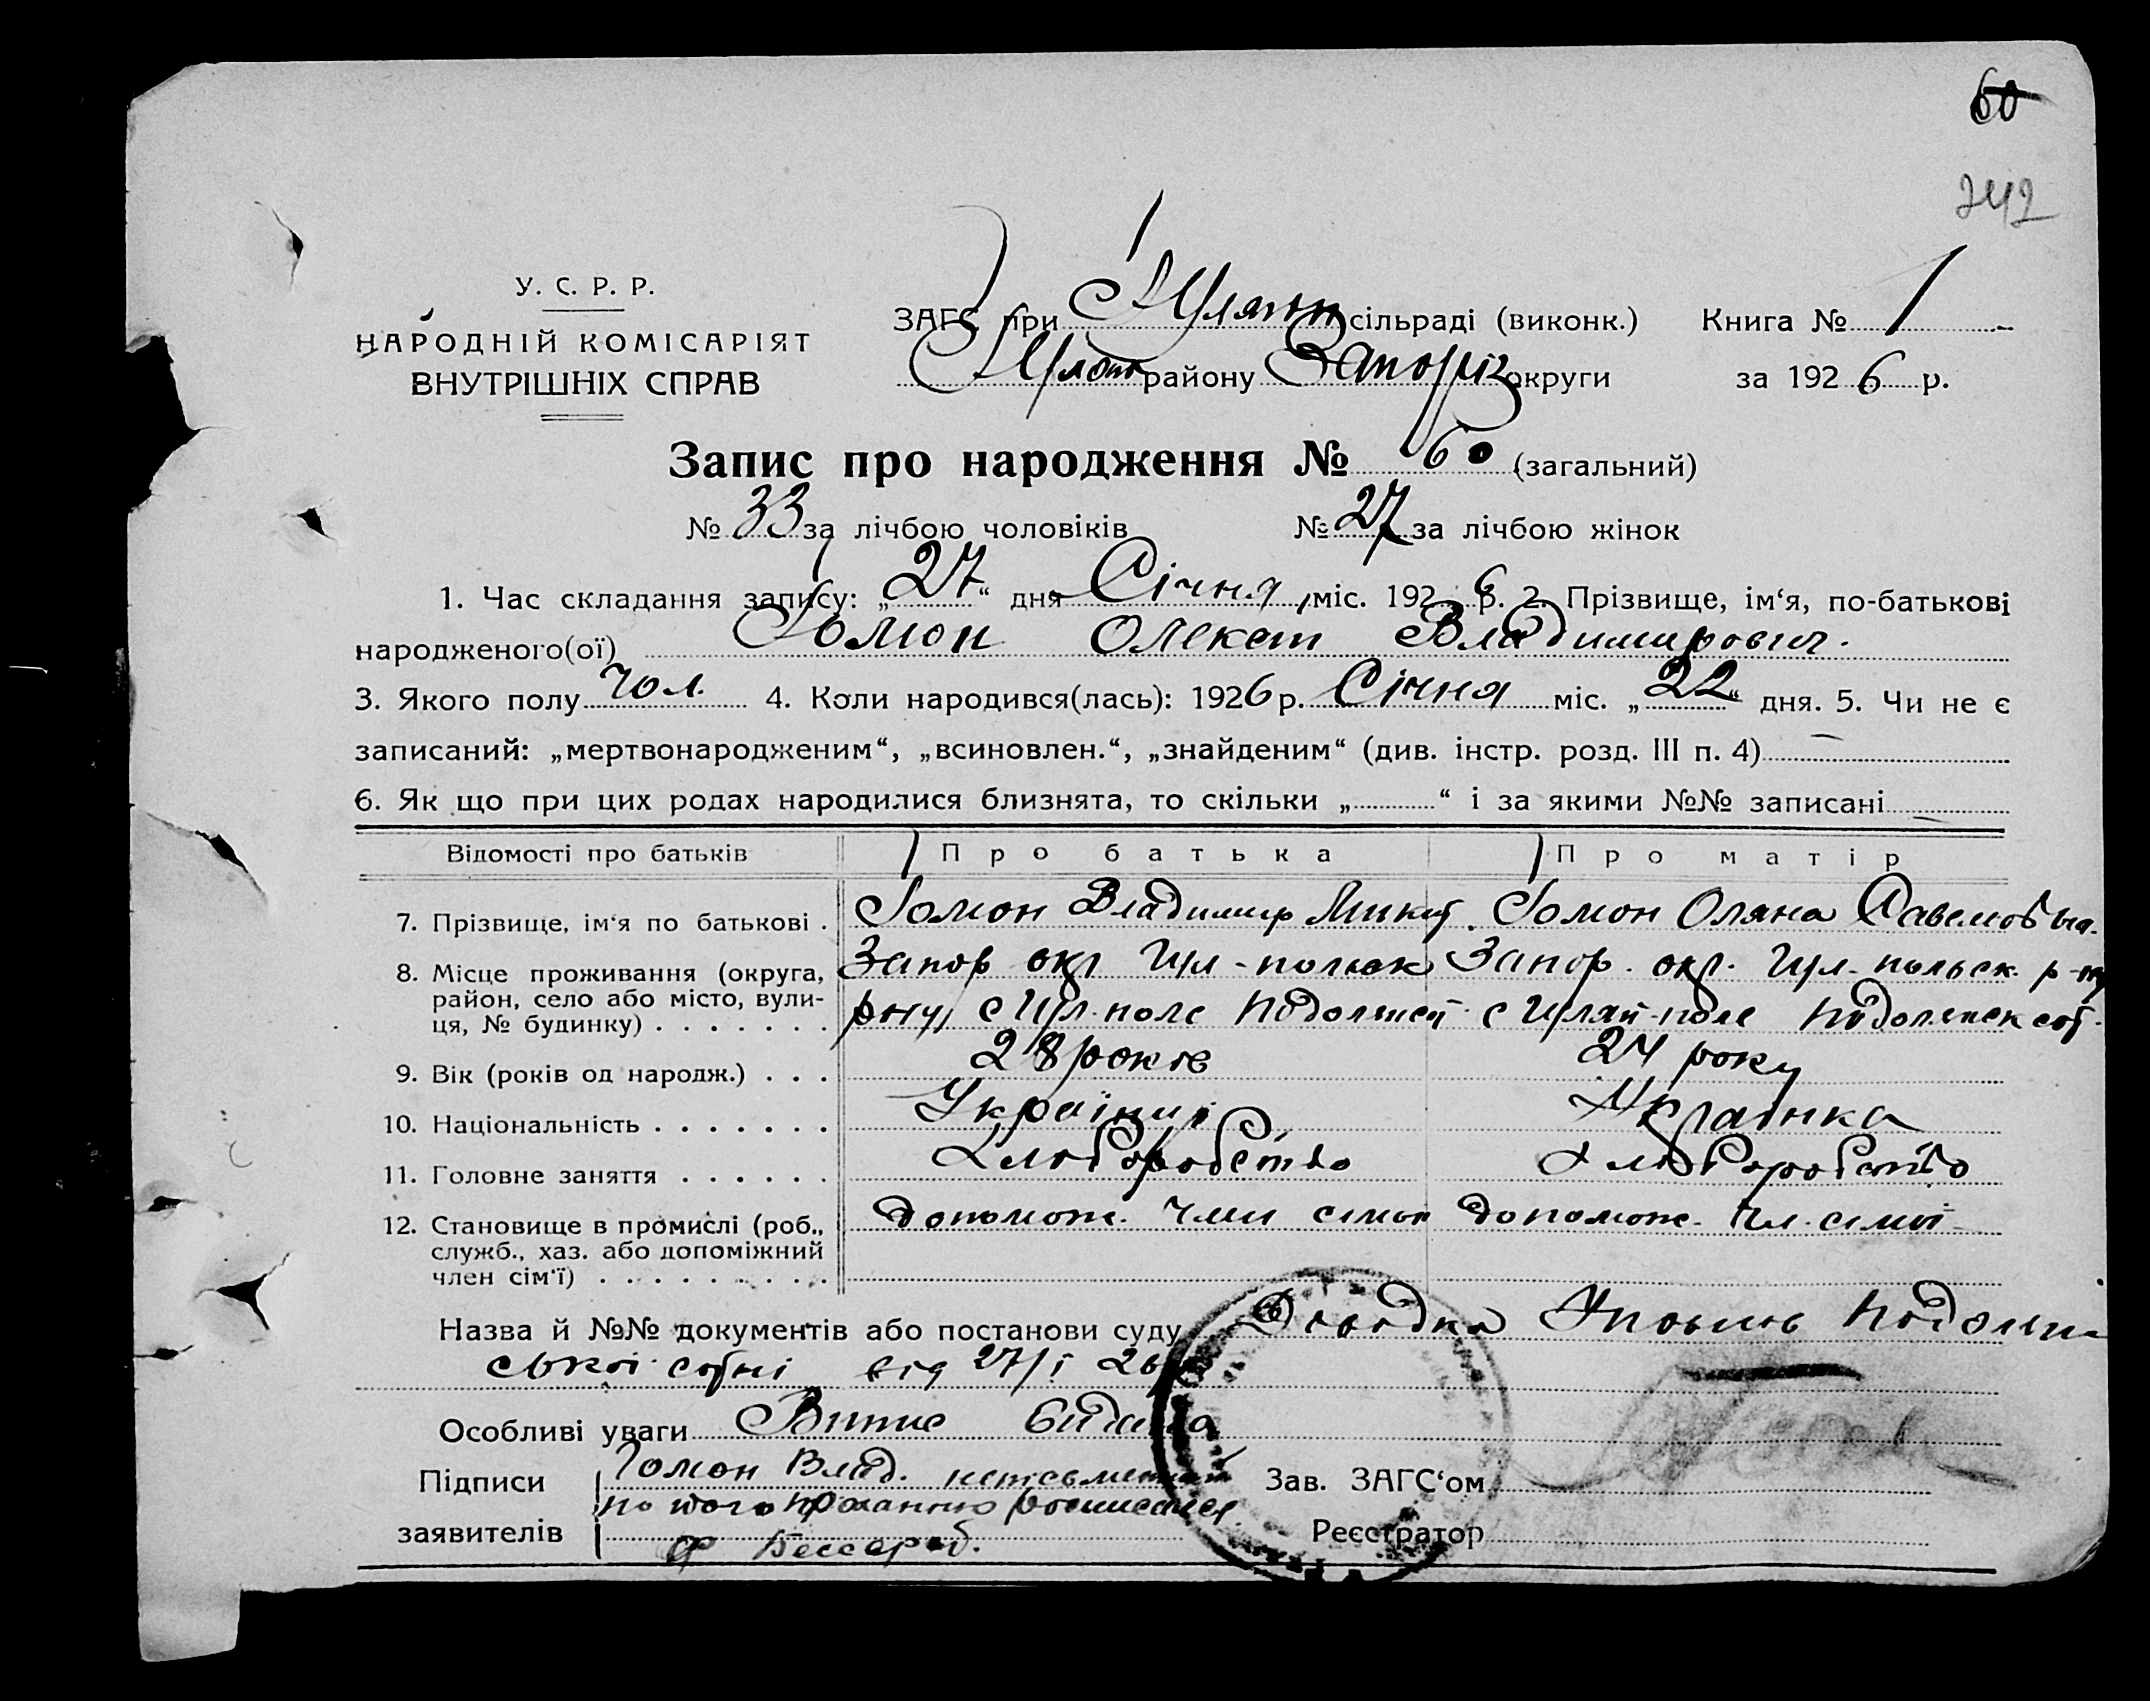 60
242
У. С. Р. Р.
НАРОДНІЙ КОМІСАРІЯТ
ВНУТРІШНІХ СПРАВ
ЗАГС при Гуляип сільраді (виконк.) Книга № 1
району Запоріз округи за 1926 р.
Запис про народження № 60 (загальний)
№ 33 за лічбою чоловіків № 27 за лічбою жінок
1. Час складання запису: „27“ дня Січня міс. 1926 р. 2. Прізвище, ім‘я, по-батькові
народженого(ої) Гомон Олексій Владимирович.
3. Якого полу чол. 4. Коли народився(лась): 1926 р. Січня міс. „22“ дня. 5. Чи не є
записаний: „мертвонародженим“, „всиновлен.“, „знайденим“ (див. інстр. розд. III п. 4) —
6. Як що при цих родах народилися близнята, то скільки „ “ і за якими №№ записані
Відомості про батьків Про батька Про матір
7. Прізвище, ім‘я по батькові . Гомон Владимир Микит. Гомон Оляна Савелювна.
8. Місце проживання (округа, Запор окр Гул-польск Запор. окр. Гул-польск. р-ну
район, село або місто, вули- р-ну, с Гул.поле Подольськ с Гуляй-поле Подольськ сот.
ця, № будинку) . . . . . . .
9. Вік (років од народж.) . . . 28 років 24 року
10. Національність . . . . . . . Українці Українка
11. Головне заняття . . . . . . Хлюборобство Хлюборобство
12. Становище в промислі (роб., допомож. член сімьи допомож. чл. сімьи
служб., хаз. або допоміжний
член сім‘ї) . . . . . . . . .
Назва й №№ документів або постанови суду Довідка Уповнов Подольсь
ської сотні від 27/I 26
Особливі уваги Випис видана
Підписи Гомон Влад. неписьменний Зав. ЗАГС‘ом
по його проханню росписался
заявителів Реєстратор